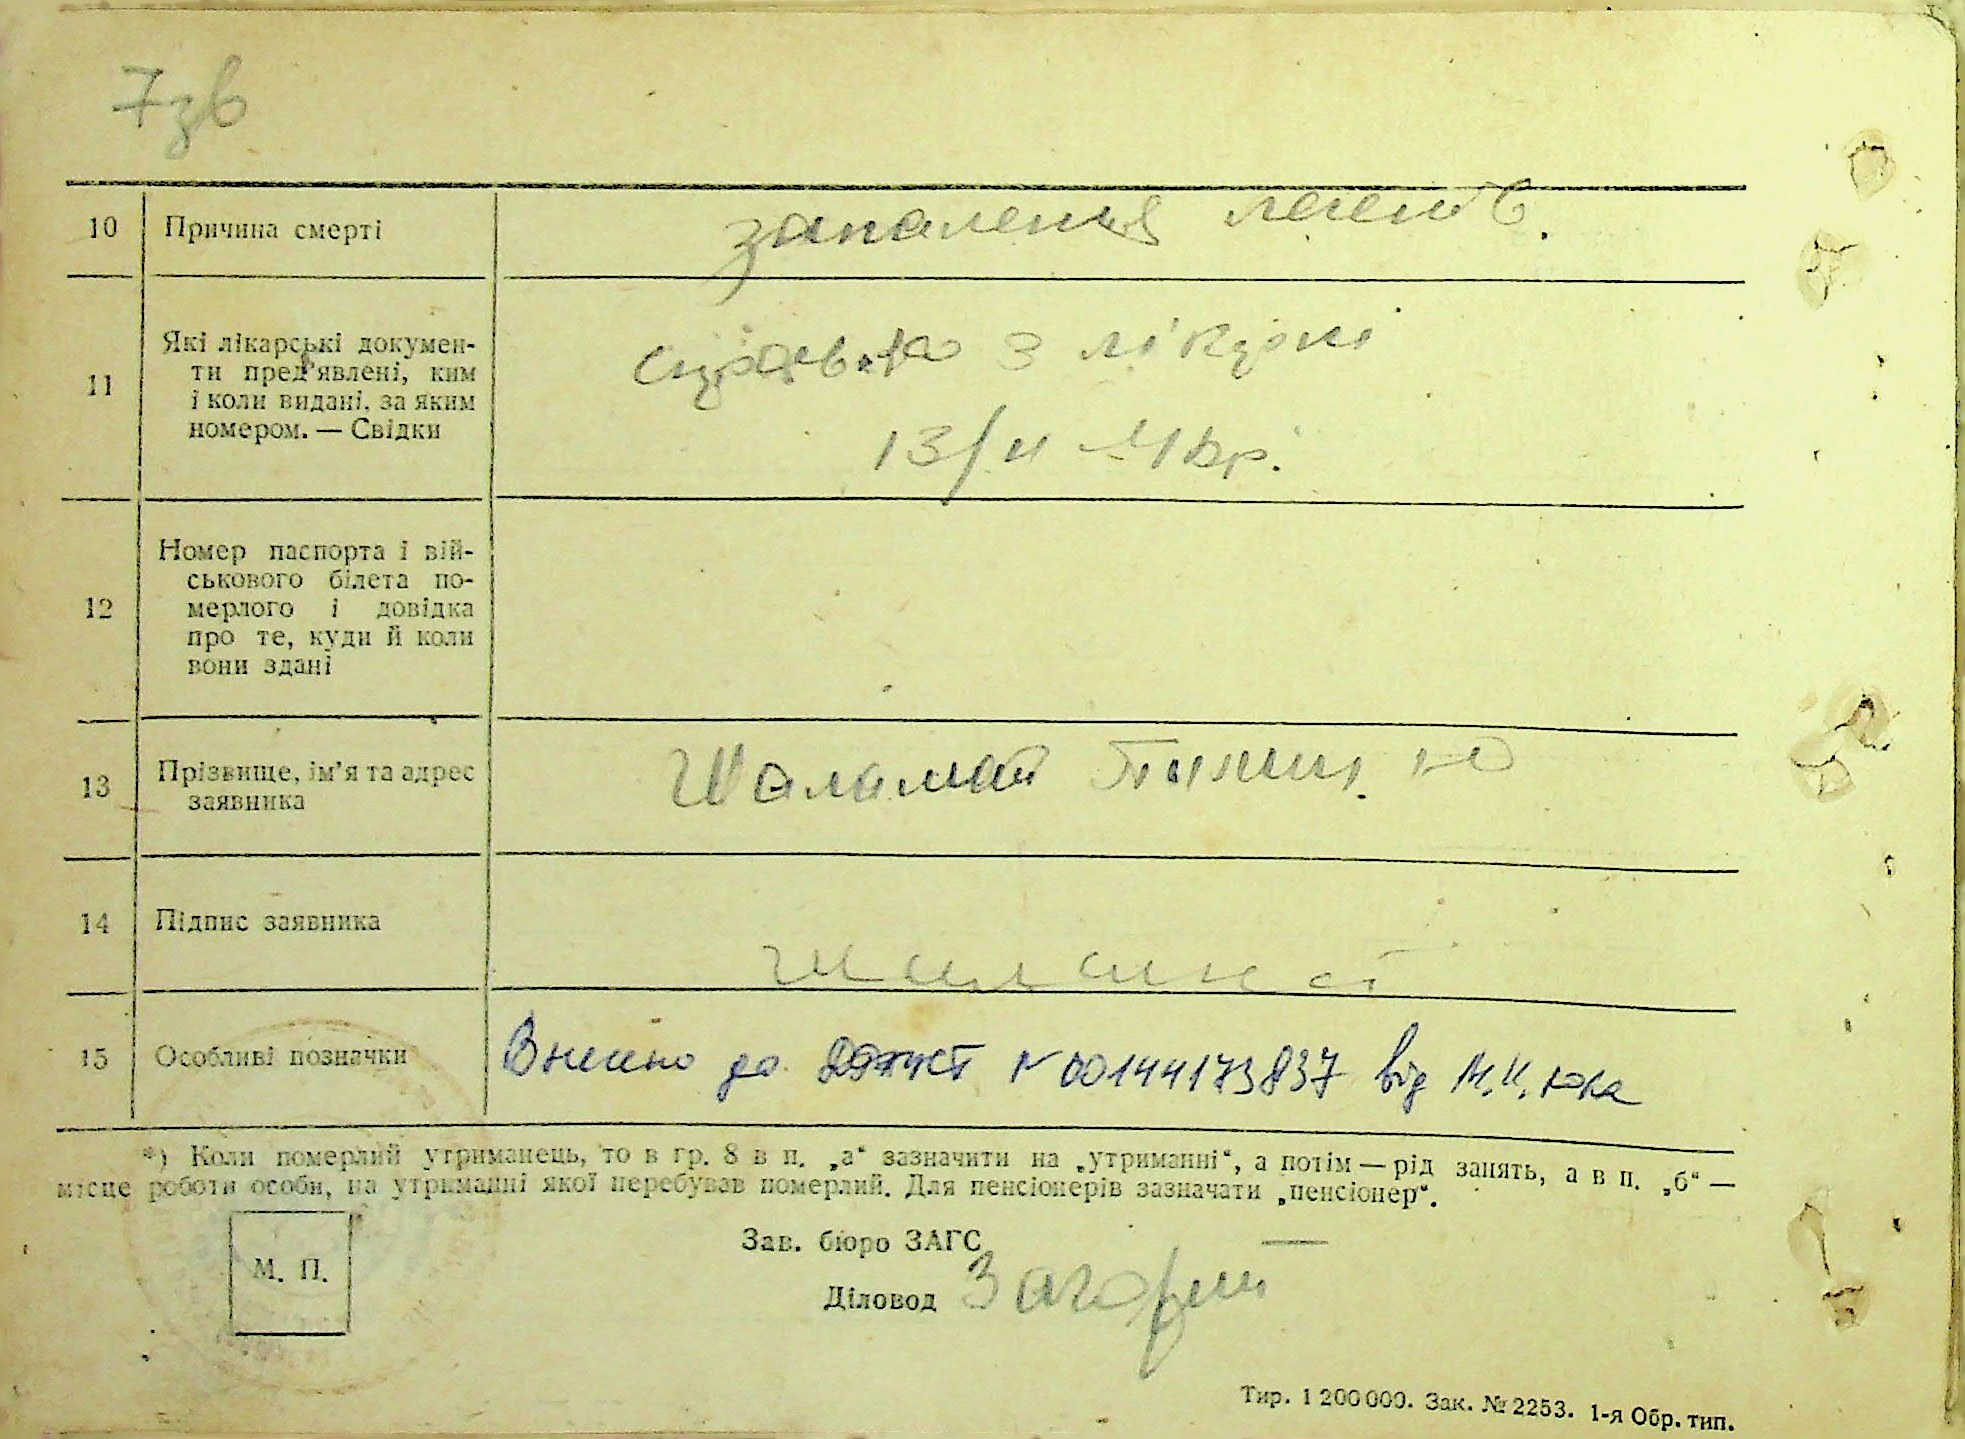 7зв
10 Причина смерті запалення легенів.
11 Які лікарські докумен-
ти пред'явлені, ким
і коли видані, за яким
номером. — Свідки
справка з лікарні
13/II 41 р.
12 Номер паспорта і вій-
ськового білета по-
мерлого і довідка
про те, куди й коли
вони здані
13 Прізвище, ім'я та адрес
заявника
Шаламай
14 Підпис заявника
15 Особливі позначки Внесено до N 00144173837 від
*) Коли померлий утриманець, то в гр. 8 в п. „а“ зазначити на „утриманні“, а потім — рід занять, а в п. „б“ —
місце роботи особи, на утриманні якої перебував померлий. Для пенсіонерів зазначати „пенсіонер“.
Зав. бюро ЗАГС —
М. П.
Діловод
Тир. 1 200 000. Зак. № 2253. 1-я Обр. тип.